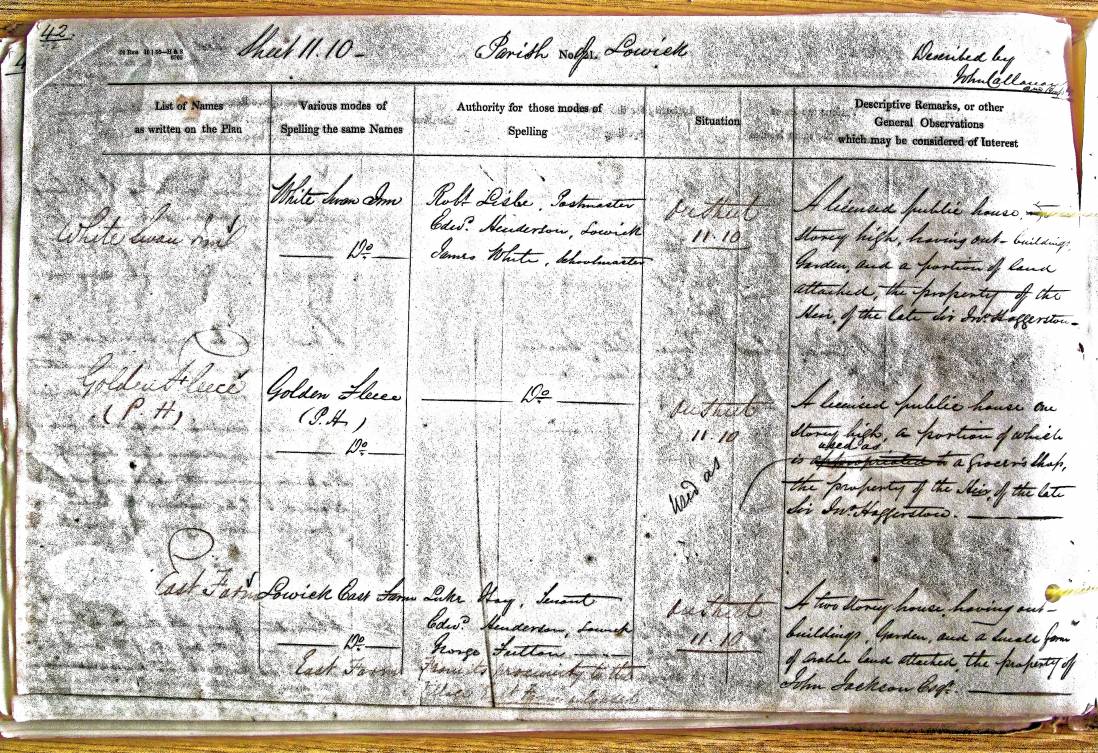 42
Sheet 11.10 - Parish of Lowick
Described by
John Callanan
List of Names
as written on the Plan
Various modes of
Spelling the same Names
Authority for those modes of
Spelling
Situation
Descriptive Remarks, or other
General Observations
which may be considered of Interest
White Swan Inn
White Swan Inn
Do
Robt. Lisle, Postmaster
Edwd. Henderson, Lowick
James White, Schoolmaster
11.10
A licensed public house,
Storey high, having out-buildings,
Garden, and a portion of land
attached, the property of the
Heir, of the late Sir Jno. Haggerston -
Golden Fleece
(P.H)
Golden Fleece
(P.H)
Do
Do
11.10
used as
A licensed public house one
Storey high, a portion of which
used as
is appropriated to a Grocer's Shop,
the property of the Heir, of the late
Sir Jno. Haggerston.
East Farm
Lowick East Farm
Do
East Farm
Luke Hay, Tenant
Edwd. Henderson, Lowick
George Fulton
From its proximity to the
11.10
A two storey house having out-
buildings, Garden, and a small farm
of arable land attached, the property of
John Jackson Esqr.